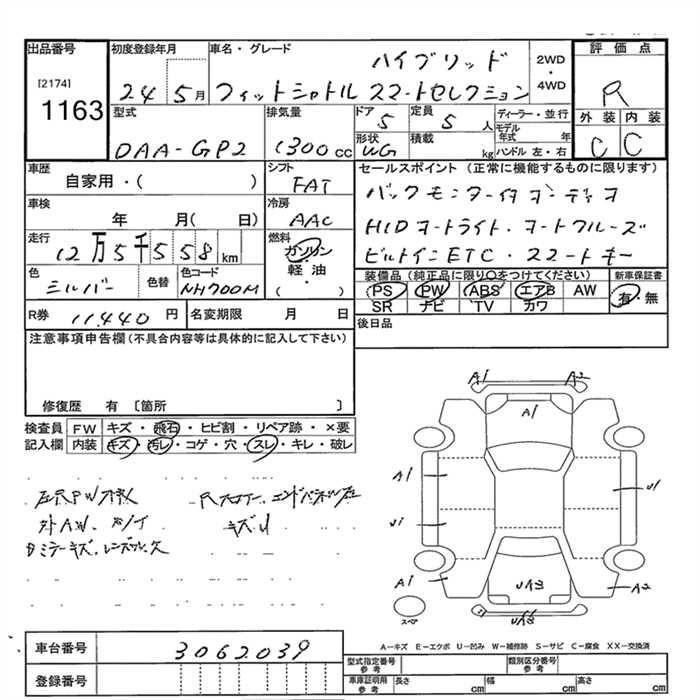 出品番号 初度登録年月 車名・グレード 評価点
[2174] 1163
24 5月 ハイブリッド 2WD・4WD
フィットシャトル スマートセレクション
R
型式 排気量 ドア 定員 ディーラー・並行 外装 内装
DAA-GP2 1300cc 5 5人 モデル年式 年
形状 WG 積載 kg ハンドル 左・右 C C
車歴 シフト セールスポイント(正常に機能するものに限ります)
自家用・( ) FAT バックモニター
車検 冷房 HIDオートライト・オートクルーズ
年 月(日) AAC ビルトインETC・スマートキー
走行 燃料
12万5千558km ガソリン・軽油・( )
色 色替 色コード 装備品(純正品に限り○をつけてください) 新車保証書
シルバー NH700M PS PW ABS エアB AW 有・無
SR ナビ TV カワ
R券 11,440円 名変期限 月 日 後日品
注意事項申告欄(不具合内容等は具体的に記入して下さい)
修復歴 有 〔箇所 〕
検査員 FW キズ・飛石・ヒビ割・リペア跡・×要
記入欄 内装 キズ・汚レ・コゲ・穴・スレ・キレ・破レ
Rフロアー、エンドパネル
外AW、 キズ
キズ、レンズ
A1 A2
A1
A1 U1
U1
A1 A2
スペア
A-キズ E-エクボ U-凹み W-補修跡 S-サビ C-腐食 XX-交換済
車台番号 3062039
登録番号
型式指定番号 参考 類別区分番号 参考
車庫証明用 参考 長さ cm 幅 cm 高さ cm